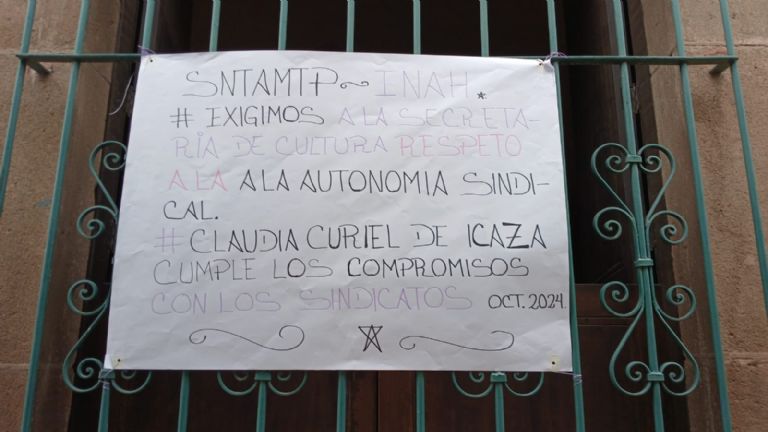 SNTAMTP~INAH.
# EXIGIMOS A LA SECRETA-
RÍA DE CULTURA RESPETO
A LA A LA AUTONOMIA SINDI-
CAL.
# CLAUDIA CURIEL DE ICAZA
CUMPLE LOS COMPROMISOS
CON LOS SINDICATOS OCT. 2024.